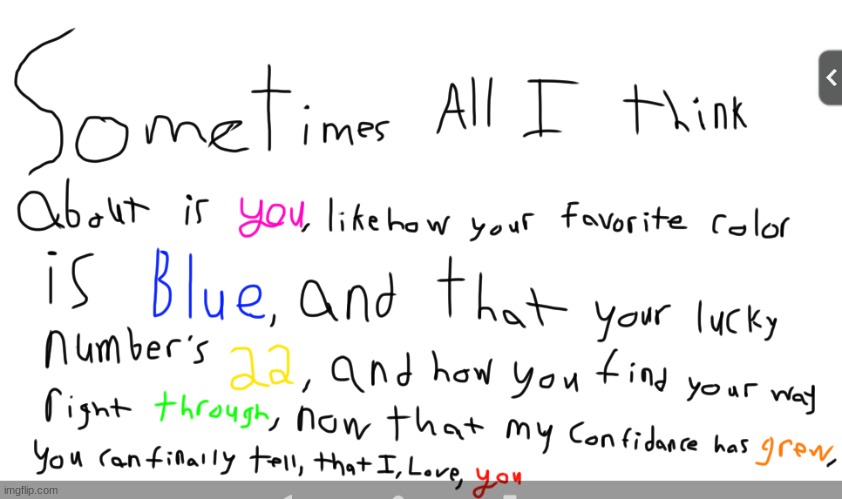 Sometimes All I think
About is you, like how your favorite color
is Blue, and that your lucky
number's 22, and how you find your way
right through, now that my Confidance has grew,
you can finally tell, that I, Love, you
imgflip.com